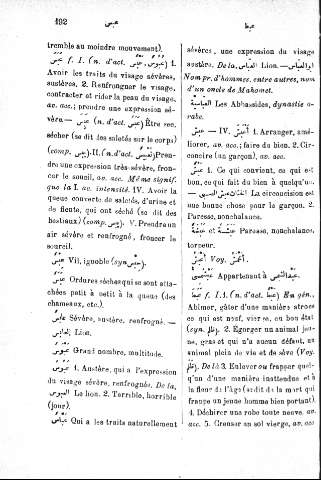 192
عبس
عبط
tremble au moindre mouvement).
عَبَسَ f. I. (n. d'act. عَبْس, عُبُوس) 1.
Avoir les traits du visage sévères,
austères. 2. Renfrogner le visage,
contracter et rider la peau du visage,
av. acc.; prendre une expression sé-
vère.— عَبِسَ (n. d'act. عَبَس) Être sec,
sécher (se dit des saletés sur le corps)
(comp. يبس). II. (n. d'act. تَعْبِيس) Pren-
dre une expression très-sévère, fron-
cer le soucil, av. acc. Même signif.
que la I. av. intensité. IV. Avoir la
queue couverte de saletés, d'urine et
de fiente, qui ont séché (se dit des
bestiaux) (comp. يبس). V. Prendre un
air sévère et renfrogné, froncer le
sourcil.
عَبْس Vil, ignoble (syn.
عَبَس Ordures sèches qui se sont atta-
chées petit à petit à la queue (des
chameaux, etc.).
عَابِس Sévère, austère, renfrogné. —
العابس Lion.
عَبُوس Grand nombre, multitude.
عَبُوس 1. Austère, qui a l'expression
du visage sévère, renfrognée. De là,
العبوس Le lion. 2. Terrible, horrible
(jour).
عَبَّاس Qui a les traits naturellement
sévères, une expression du visage
austère. De là, العبّاس Lion. —
Nom pr. d'hommes, entre autres, nom
d'un oncle de Mahomet.
العباسية Les Abbassides, dynastie a-
rabe.
عبش — IV. أَعْبَشَ 1. Arranger, amé-
liorer, av. acc.; faire du bien. 2. Cir-
concire (un garçon), av. acc.
عَبْش 1. Ce qui convient, ce qui est
bon, ce qui fait du bien à quelqu'un.
La circoncision est
une bonne chose pour le garçon. 2.
Paresse, nonchalance.
Paresse, nonchalance,
torpeur.
Voy.
Appartenant à
عَبَطَ f. I. 1. (n. d'act. عَبْط) En gén.,
Abîmer, gâter d'une manière atroce
ce qui est neuf, vierge, en bon état
(syn. 2. Égorger un animal jeu-
ne, gras et qui n'a aucun défaut, un
animal plein de vie et de sève (Voy.
De là 3. Enlever ou frapper quel-
qu'un d'une manière inattendue et à
la fleur de l'âge (se dit de la mort qui
frappe un jeune homme bien portant).
4. Déchirer une robe toute neuve, av.
acc. 5. Creuser un sol vierge, av. acc